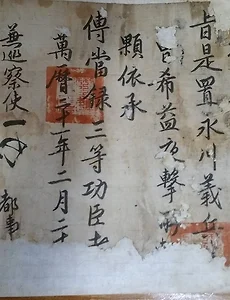 旨是置永川義兵
希益
擊
顆依承
傳當錄三等功臣
萬曆二十一年二月二十
兼巡察使
都事